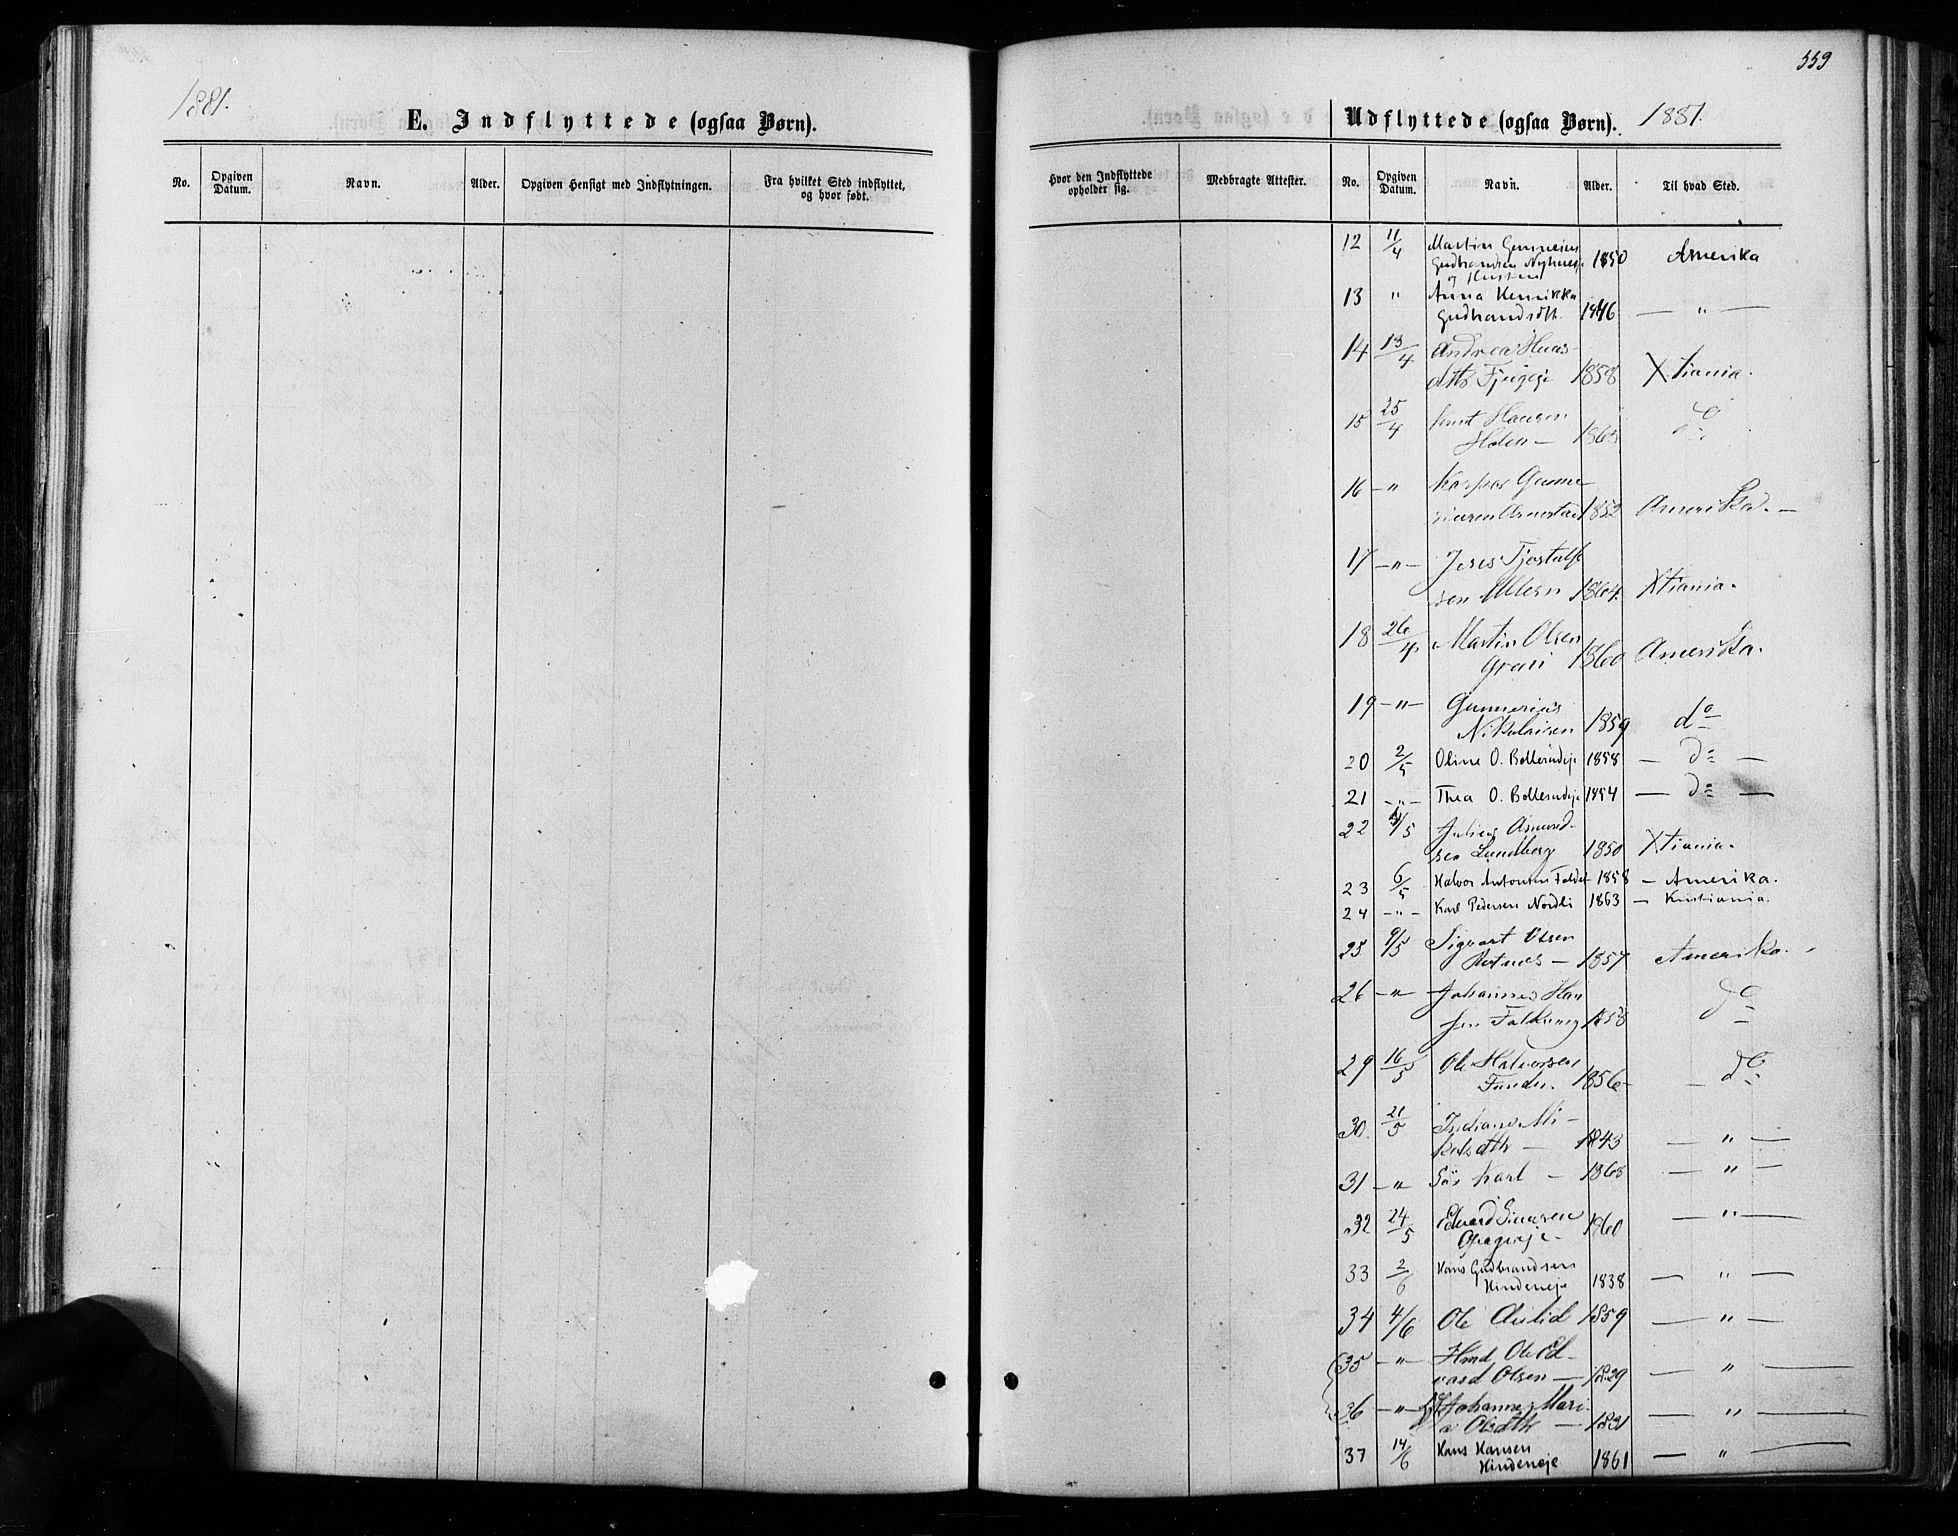 559
1881.
E. Indflyttede (ogsaa Børn).
Udflyttede (ogsaa Børn). 1881.
No. Opgiven Datum. Navn. Alder. Opgiven Hensigt med Indflytningen. Fra hvilket Sted indflyttet, og hvor født.
Hvor den Indflyttede opholder sig. Medbragte Attester. No. Opgiven Datum. Navn. Alder. Til hvad Sted.
12 11/4 Martin
Gudbrandsen 1850 Amerika
og Hustru
13 " Anna Henrikka
Gudbrandsdtr. 1846 — " —
14 13/4 Andrea
1858 Xtiania.
15 25/4 Knut Hansen
Holen — 1863 do
16 — " Kaspar Gunne
1852 Amerika. —
17 — " — Jens Tjostolf
sen 1864. Xtiania.
18 26/4 Martin Olsen
1860 Amerika.
19 — " — Gunnerius
Nikolaisen 1859 do
20 2/5 Oline O. Bollerudeje 1858 — do —
21 — " — Thea O. Bollerudeje 1854 — do —
22 4/5 Julius Amund-
sen Lundberg 1850 Xtiania.
23 6/5 Halvor Antonsen Faldet 1858 — Amerika.
24 — " — Karl Pedersen Nordli 1863 — Kristiania.
25 9/5 Sigvart Olsen
1857 Amerika.
26 — " — Johannes Han
sen 1858 do
29 16/5 Ole Halvorsen
1856 — do
30. 21/5 Indiane Mi-
kelsdtr — 1843 — " —
31 — " Karl — 1868 — " —
32 24/5 Edvard Simensen
1860 — " —
33 2/6 Hans Gudbrandsen
Hindeneje 1838 — " —
34 4/6 Ole Aulid 1859 — " —
35 — " — Ole Ed-
vard Olsen — 1829 — " —
36 — " — Johanne Mari-
a Olsdtr — 1831 — " —
37 14/6 Hans Hansen
Hindeneje 1861 — " —